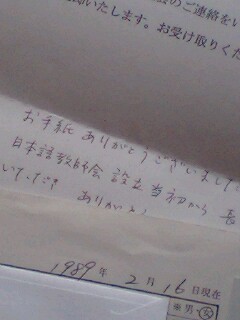 のご連絡をい
いたします。お受け取りくだ
お手紙 ありがとうございました
日本語教師会 設立当初から 長
いただき
ありがと
1989年 2月16日現在
※男・女